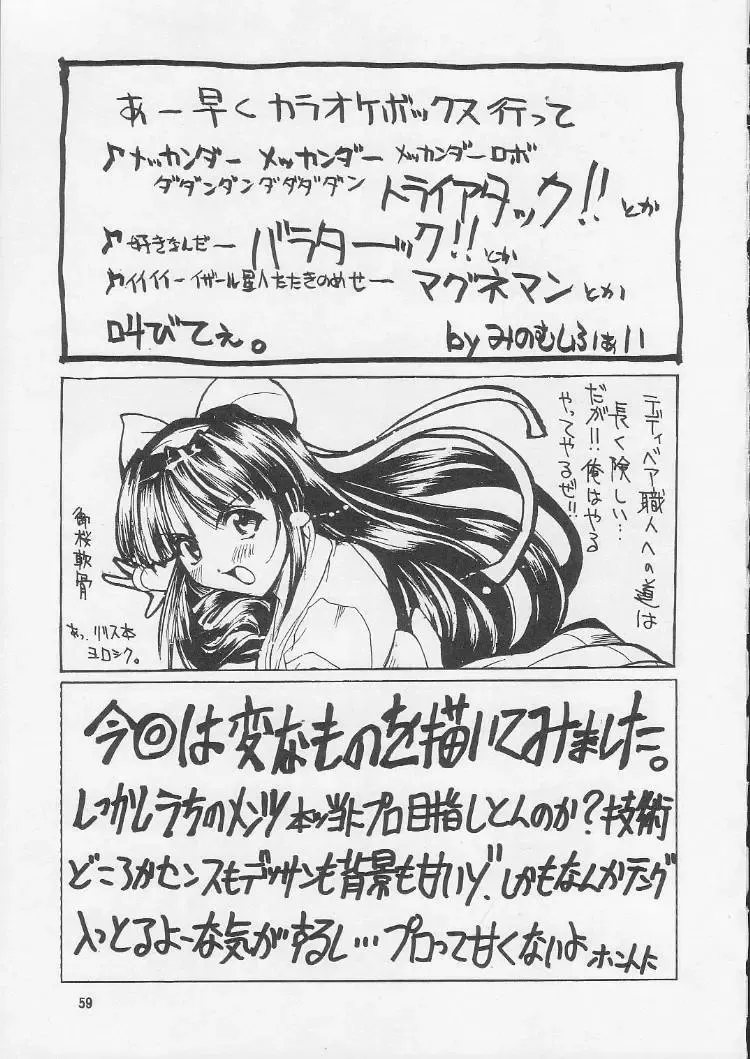 あー早くカラオケボックス行って
♪メッカンダー メッカンダー メッカンダーロボ
ダダンダンダダダダン トライアタック!!とか
♪好きなんだー バラターック!!とか
♪イイイイー イザール星人たたきのめせー マグネマンとか
叫びてぇ。 by みのむしふぁい
テディベア職人への道は
長く険しい…
だが!!俺はやる
やってやるぜ!!
御桜軟骨
あっ、リス本
ヨロシク。
今回は変なものを描いてみました。
しっかしうちのメンツ本当にプロ目指しとんのか?技術
どころかセンスもデッサンも背景も甘いゾ、しかもなんかテング
入っとるよーな気がするし…プロって甘くないよ ホントに
59